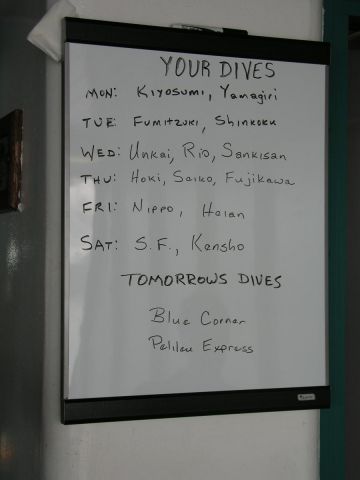 YOUR DIVES
MON: KIYOSUMI, Yamagiri
TUE: FUMITZUKI, SHINKOKU
WED: Unkai, Rio, Sankisan
THU: HOKI, Seiko, Fujikawa
FRI: NIPPO, Heian
SAT: S.F., Kensho
TOMORROWS DIVES
Blue Corner
Pelileu Express